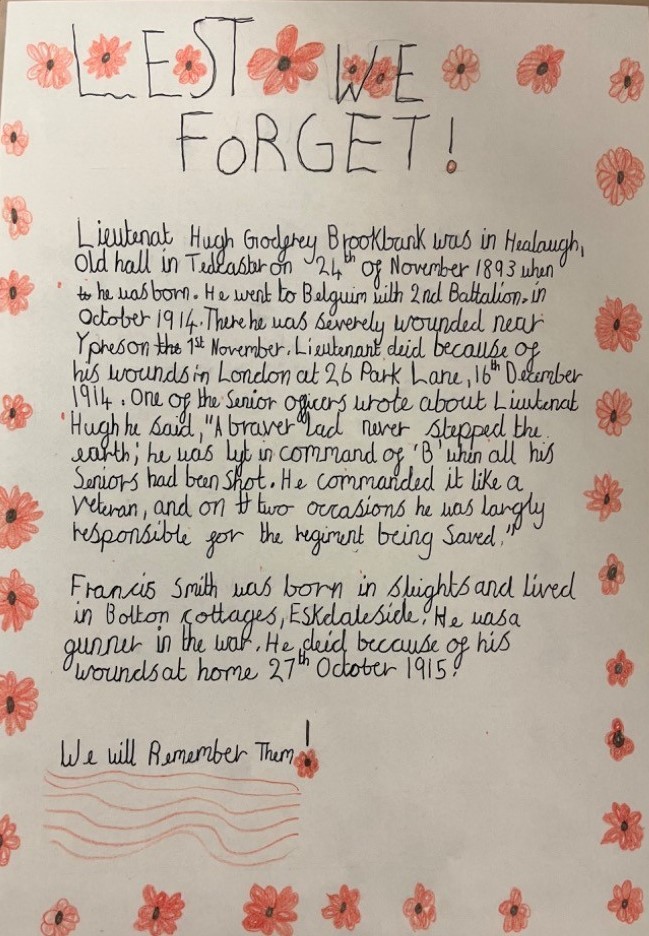 LEST WE
FORGET!
Lieutenat Hugh Godfrey Brookbank was in Healaugh,
Old hall in Tedcaster on 24th of November 1893 when
he was born. He went to Belguim with 2nd Battalion, in
October 1914. There he was severely wounded near
Ypres on the 1st November. Lieutenant deid because of
his wounds in London at 26 Park Lane, 16th December
1914. One of the Senior officers wrote about Lieutenat
Hugh he said, "A braver lad never stepped the
earth; he was lyt in command of 'B' when all his
Seniors had been shot. He commanded it like a
veteran, and on two occasions he was largly
responsible for the regiment being saved."
Francis Smith was born in Sleights and lived
in Bolton cottages, Eskdaleside. He was a
gunner in the war. He deid because of his
wounds at home 27th October 1915.
We will Remember Them!